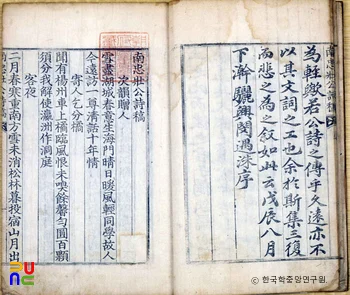 為輕歟若公詩之傳乎久遠亦不
以其文詞之工也余於斯集三復
而悲之為之叙如此云戊辰八月
下澣驪興閔遇洙序
南忠壯公詩稿
次韻贈人
雪盡湖城春意生海門晴日暖風輕同學故人
今遠訪一尊清話十年情
寄人乞分橘
聞有楊州車上橘臨風恨未嗅餘馨勻圓百顆
須分我解使瀛洲作洞庭
客夜
二月春寒重南方雪未消松林暮投宿山月出
PUNC
©한국학중앙연구원